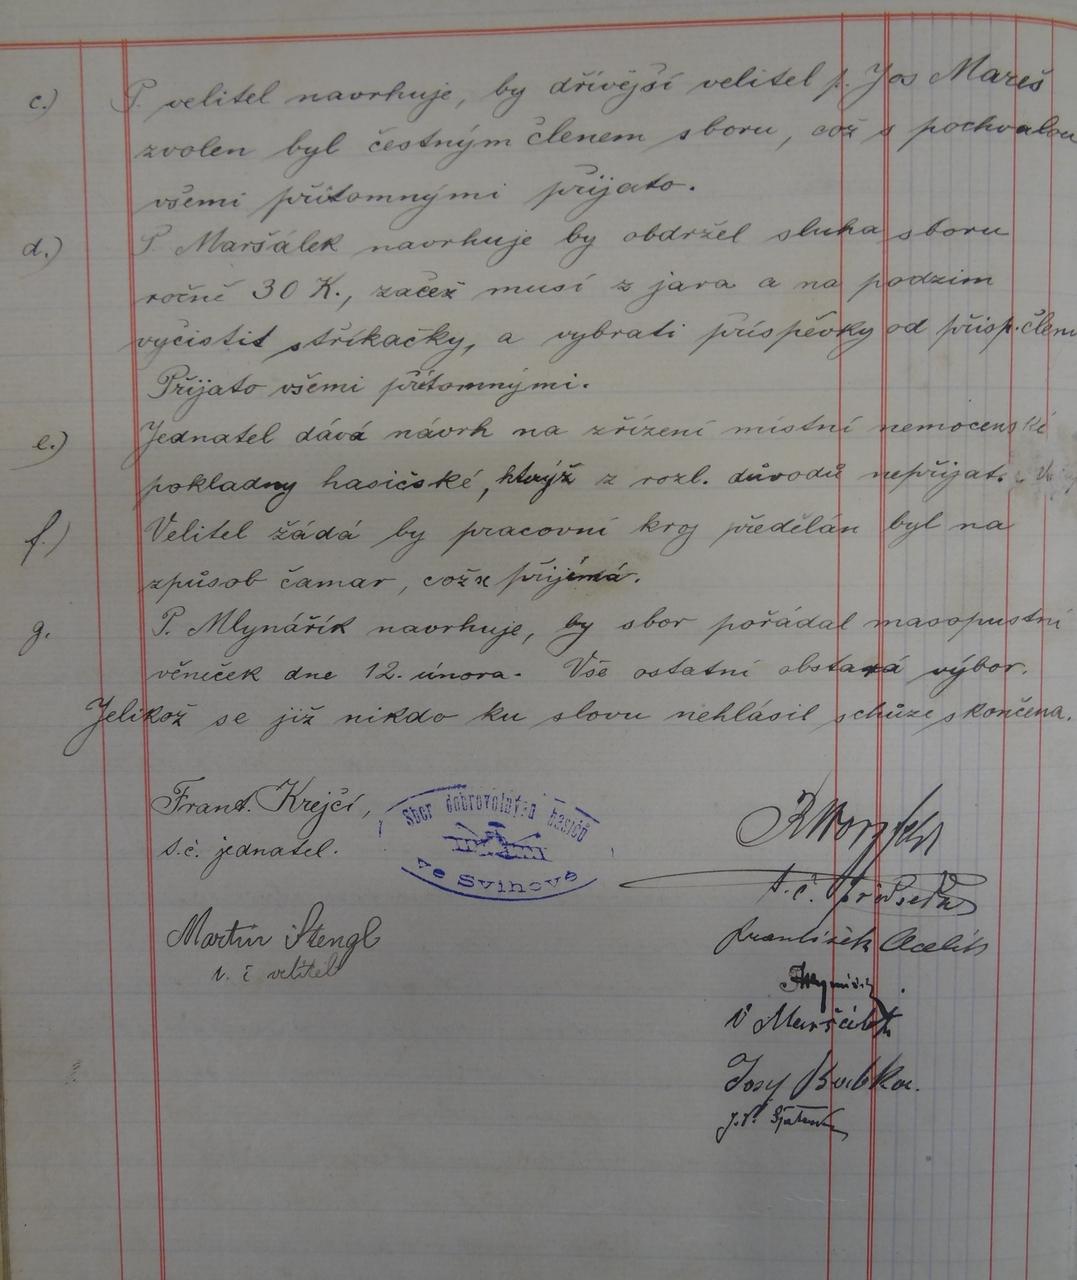 c.) P. velitel navrhuje, by dřívější velitel p. Jos Mareš
zvolen byl čestným členem sboru, což s pochvalou
všemi přítomnými přijato.
d.) P. Maršálek navrhuje by obdržel sluha sboru
ročně 30 K., začež musí z jara a na podzim
vyčistit stříkačky, a vybrati příspěvky od přisp. členů
Přijato všemi přítomnými.
e.) Jednatel dává návrh na zřízení místní nemocenské
pokladny hasičské, kterýž z rozl. důvodů nepřijat.
f.) Velitel žádá by pracovní kroj předělán byl na
způsob čamar, což přijímá.
g. P. Mlynářík navrhuje, by sbor pořádal masopustní
věneček dne 12. února. Vše ostatní obstará výbor.
Jelikož se již nikdo ku slovu nehlásil schůze skončena.
Frant. Krejčí,
t.č. jednatel.
Sbor dobrovolných hasičů
ve Švihově
t. č. předseda
Martin Stengl
t. č. velitel
František
V Maršálek
Josef Bubka.